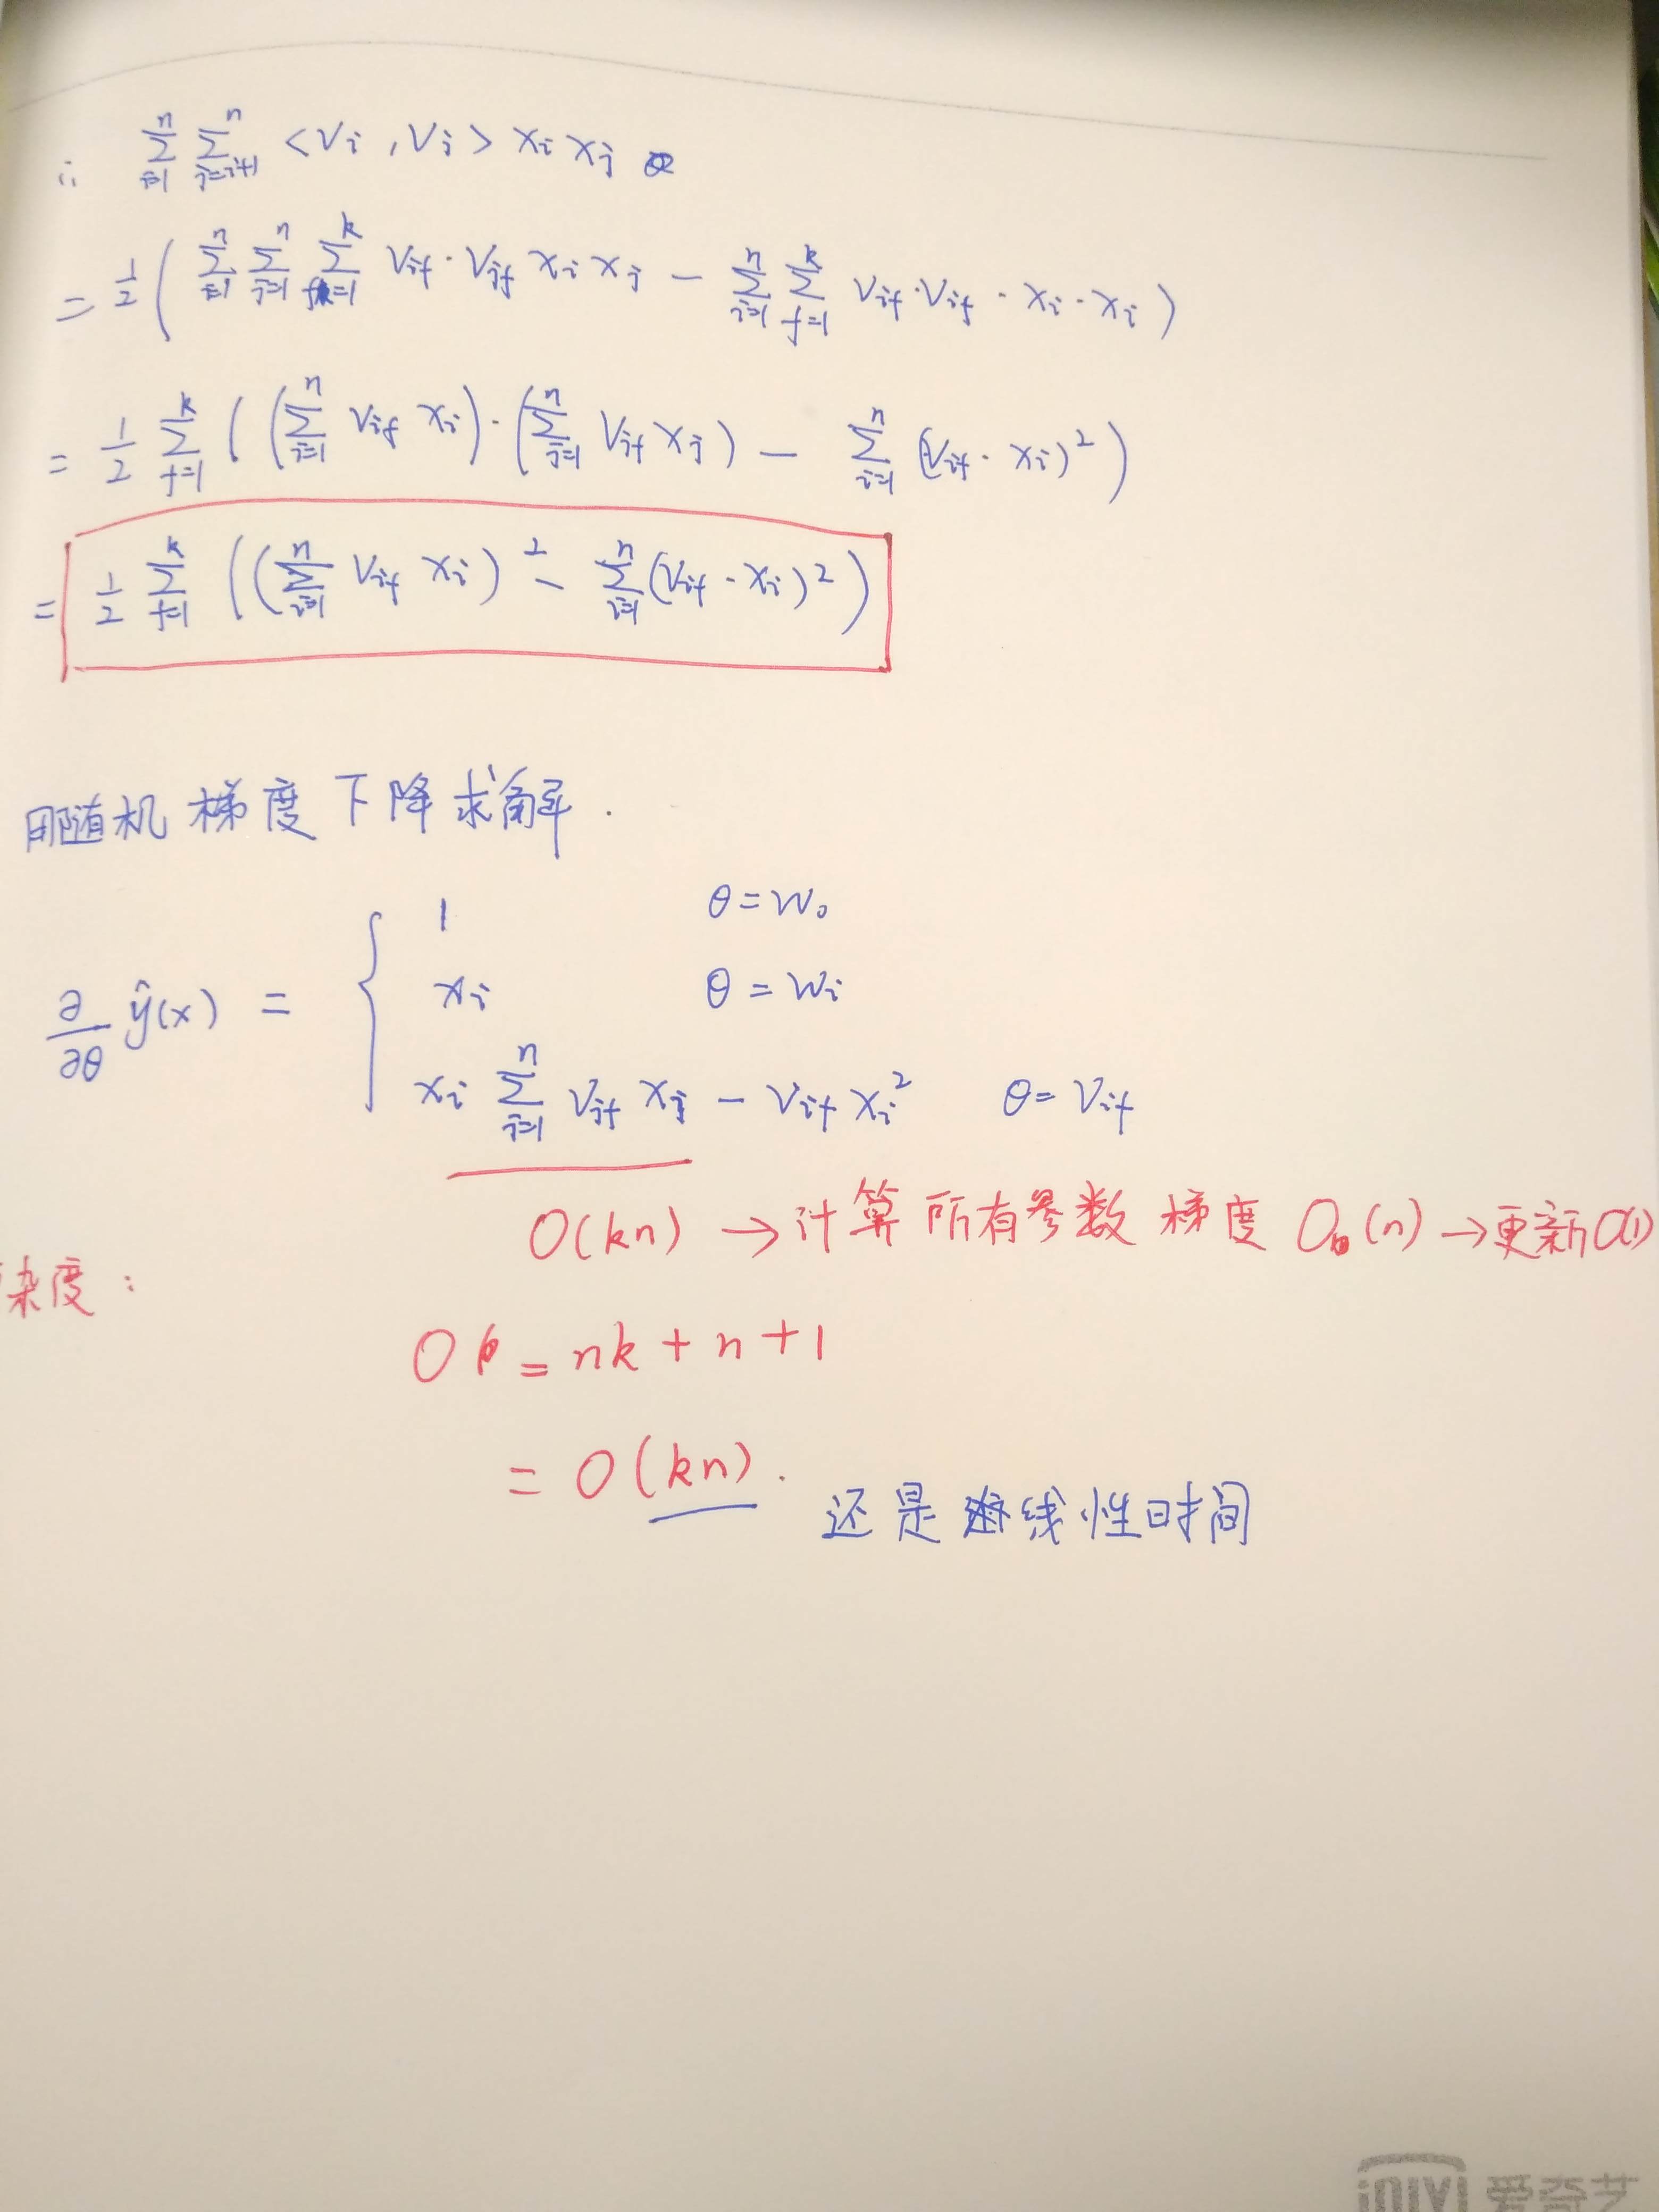 ∴ \sum_{i=1}^{n} \sum_{j=i+1}^{n} <V_i, V_j> x_i x_j
= \frac{1}{2} ( \sum_{i=1}^{n} \sum_{j=1}^{n} \sum_{f=1}^{k} V_{if} · V_{jf} x_i x_j - \sum_{i=1}^{n} \sum_{f=1}^{k} V_{if} · V_{if} · x_i · x_i )
= \frac{1}{2} \sum_{f=1}^{k} ( ( \sum_{i=1}^{n} V_{if} x_i ) · ( \sum_{j=1}^{n} V_{jf} x_j ) - \sum_{i=1}^{n} (V_{if} · x_i)^2 )
= \frac{1}{2} \sum_{f=1}^{k} ( ( \sum_{i=1}^{n} V_{if} x_i )^2 - \sum_{i=1}^{n} (V_{if} · x_i)^2 )
用随机梯度下降求解.
\frac{∂}{∂θ} ŷ(x) = {
1 θ = w_0
x_i θ = w_i
x_i \sum_{j=1}^{n} V_{jf} x_j - V_{if} x_i^2 θ = V_{if}
O(kn) → 计算所有参数梯度 O(n) → 更新O(1)
杂度:
O = nk + n + 1
= O(kn).
还是线性时间
iQIYI 爱奇艺